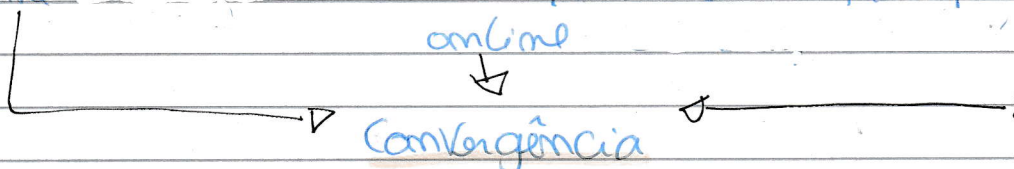 online
Convergência